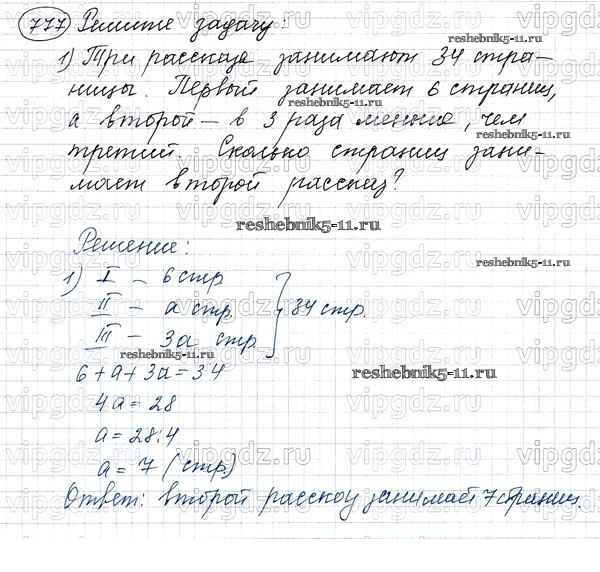 777 Решите задачу:
1) Три рассказа занимают 34 стра-
ницы. Первый занимает 6 страниц,
а второй – в 3 раза меньше, чем
третий. Сколько страниц зани-
мает второй рассказ?
Решение:
1) I – 6 стр.
II – а стр. } 34 стр.
III – 3а стр.
6 + а + 3а = 34
4а = 28
а = 28:4
а = 7 (стр.)
Ответ: второй рассказ занимает 7 страниц.
reshebnik5-11.ru
reshebnik5-11.ru
reshebnik5-11.ru
vipgdz.ru